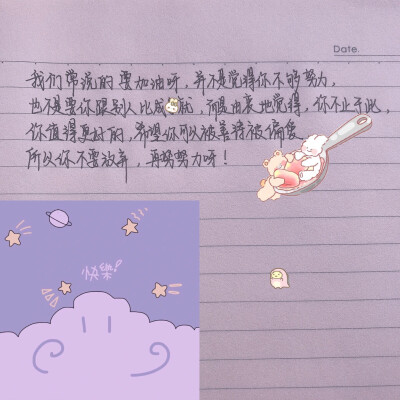 Date.
我们常说的要加油呀，并不是觉得你不够努力，
也不是要你跟别人比成就，而是由衷地觉得，你不止于此，
你值得更好的，希望你可以被善待被偏爱
所以你不要放弃，再努努力呀！
快樂!